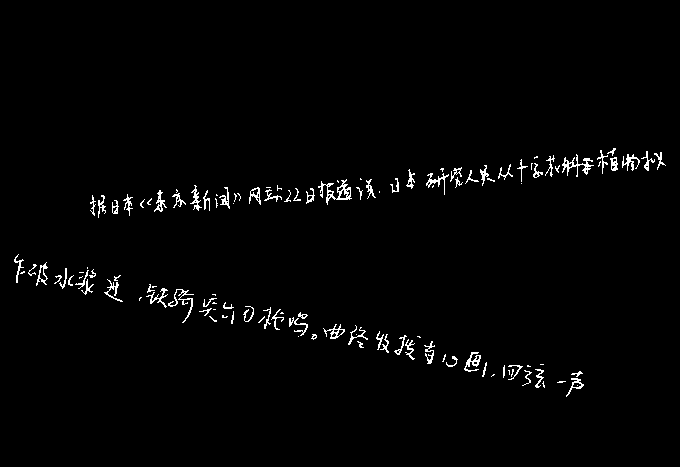 据日本《东京新闻》网站22日报道说，日本研究人员从十字花科植物拟
乍破水浆迸，铁骑突出刀枪鸣。曲终收拨当心画，四弦一声